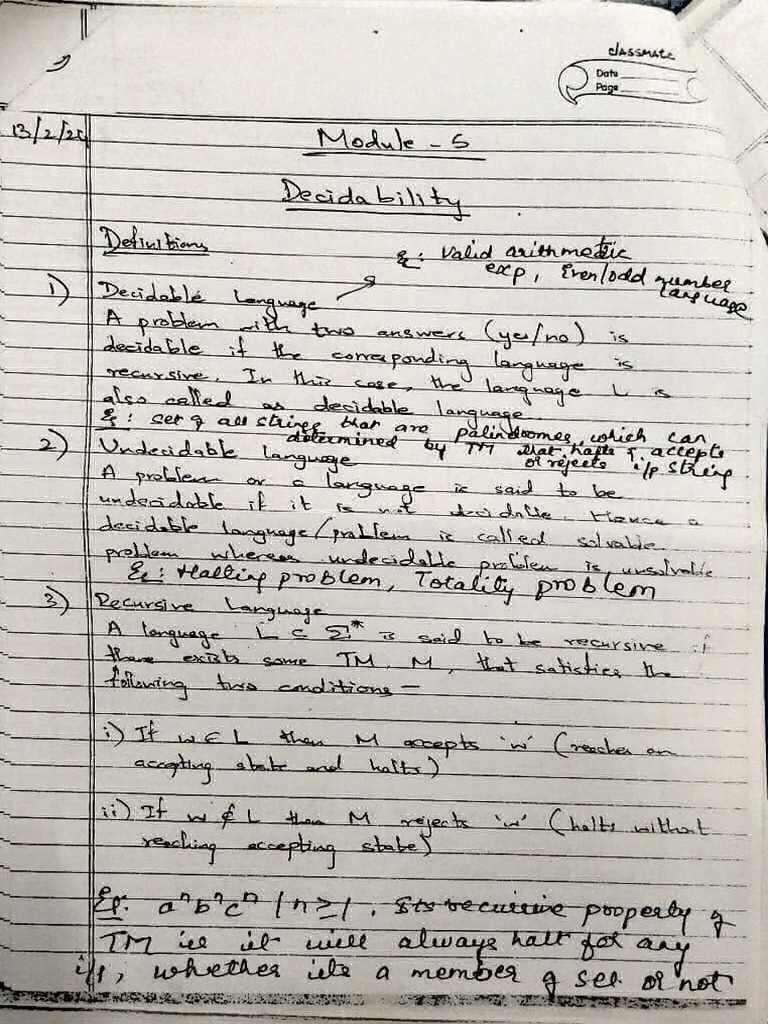 classmate
Date
Page
13/2/2
Module - 5
Decidability
Definitions
Eg: Valid arithmetic
exp, Even/odd number
language
1) Decidable Language
A problem with two answers (yes/no) is
decidable if the corresponding language is
recursive. In this case, the language L is
also called as decidable language
Eg: set of all strings that are palindromes, which can
determined by TM that halts & accepts
or rejects i/p string
2) Undecidable Language
A problem or a language is said to be
undecidable if it is not decidable. Hence a
decidable language/problem is called solvable
problem whereas undecidable problem is unsolvable
Eg: Halting problem, Totality problem
3) Recursive Language
A language L ⊂ Σ* is said to be recursive if
there exists some TM, M, that satisfies the
following two conditions -
i) If w ∈ L then M accepts 'w' (reaches an
accepting state and halts)
ii) If w ∉ L then M rejects 'w' (halts without
reaching accepting state)
Eg: aⁿbⁿcⁿ | n ≥ 1. Its recursive property of
TM ie it will always halt for any
i/p, whether its a member of set or not